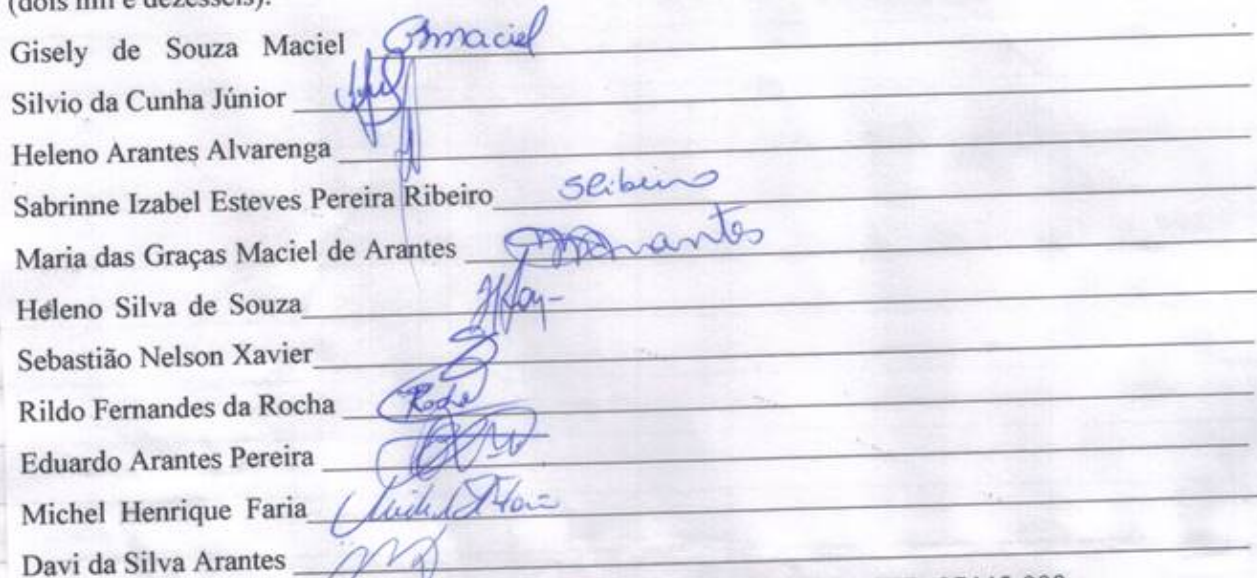 (dois mil e dezesseis).
Gisely de Souza Maciel GMaciel
Silvio da Cunha Júnior
Heleno Arantes Alvarenga
Sabrinne Izabel Esteves Pereira Ribeiro SRibeiro
Maria das Graças Maciel de Arantes MMArantes
Heleno Silva de Souza
Sebastião Nelson Xavier
Rildo Fernandes da Rocha Rocha
Eduardo Arantes Pereira
Michel Henrique Faria
Davi da Silva Arantes